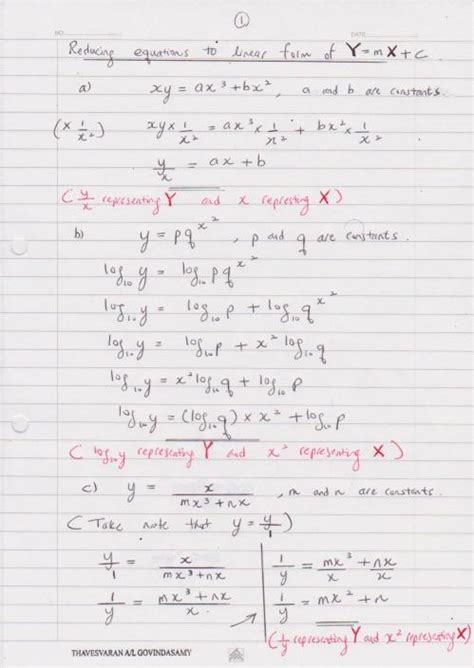 ①
NO. DATE
Reducing equations to linear form of Y=mX+C
a) xy = ax³+bx², a and b are constants.
(× 1/x²) xy × 1/x² = ax³ × 1/x² + bx² × 1/x²
y/x = ax + b
(y/x representing Y and x represting X)
b) y = pq^x², p and q are constants.
log₁₀ y = log₁₀ pq^x²
log₁₀ y = log₁₀ p + log₁₀ q^x²
log₁₀ y = log₁₀ p + x² log₁₀ q
log₁₀ y = x² log₁₀ q + log₁₀ p
log₁₀ y = (log₁₀ q) × x² + log₁₀ p
(log₁₀ y representing Y and x² representing X)
c) y = x/(mx³+nx), m and n are constants.
(Take note that y = y/1)
y/1 = x/(mx³+nx)
1/y = (mx³+nx)/x.
1/y = mx³/x + nx/x
1/y = mx² + n
(1/y representing Y and x² representing X)
THAVESVARAN A/L GOVINDASAMY